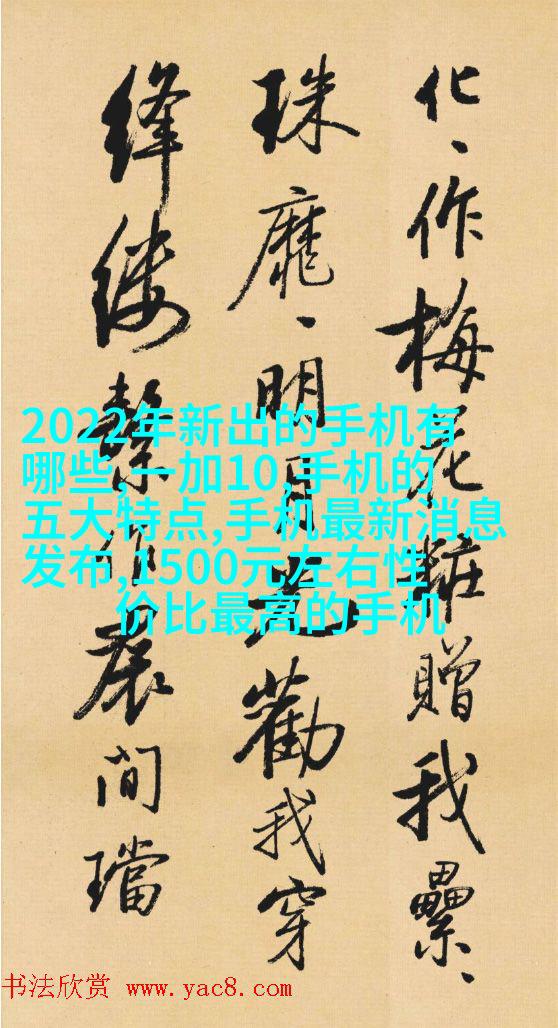 化、作梅花粧贈我纍、
珠靡、明月光勸我穿
絳縷繫作裠間璫
2022年新出的手机有
哪些,一加10,手机的
五大特点,手机最新消息
发布,1500元左右性
价比最高的手机
书法欣赏 www.yac8.com